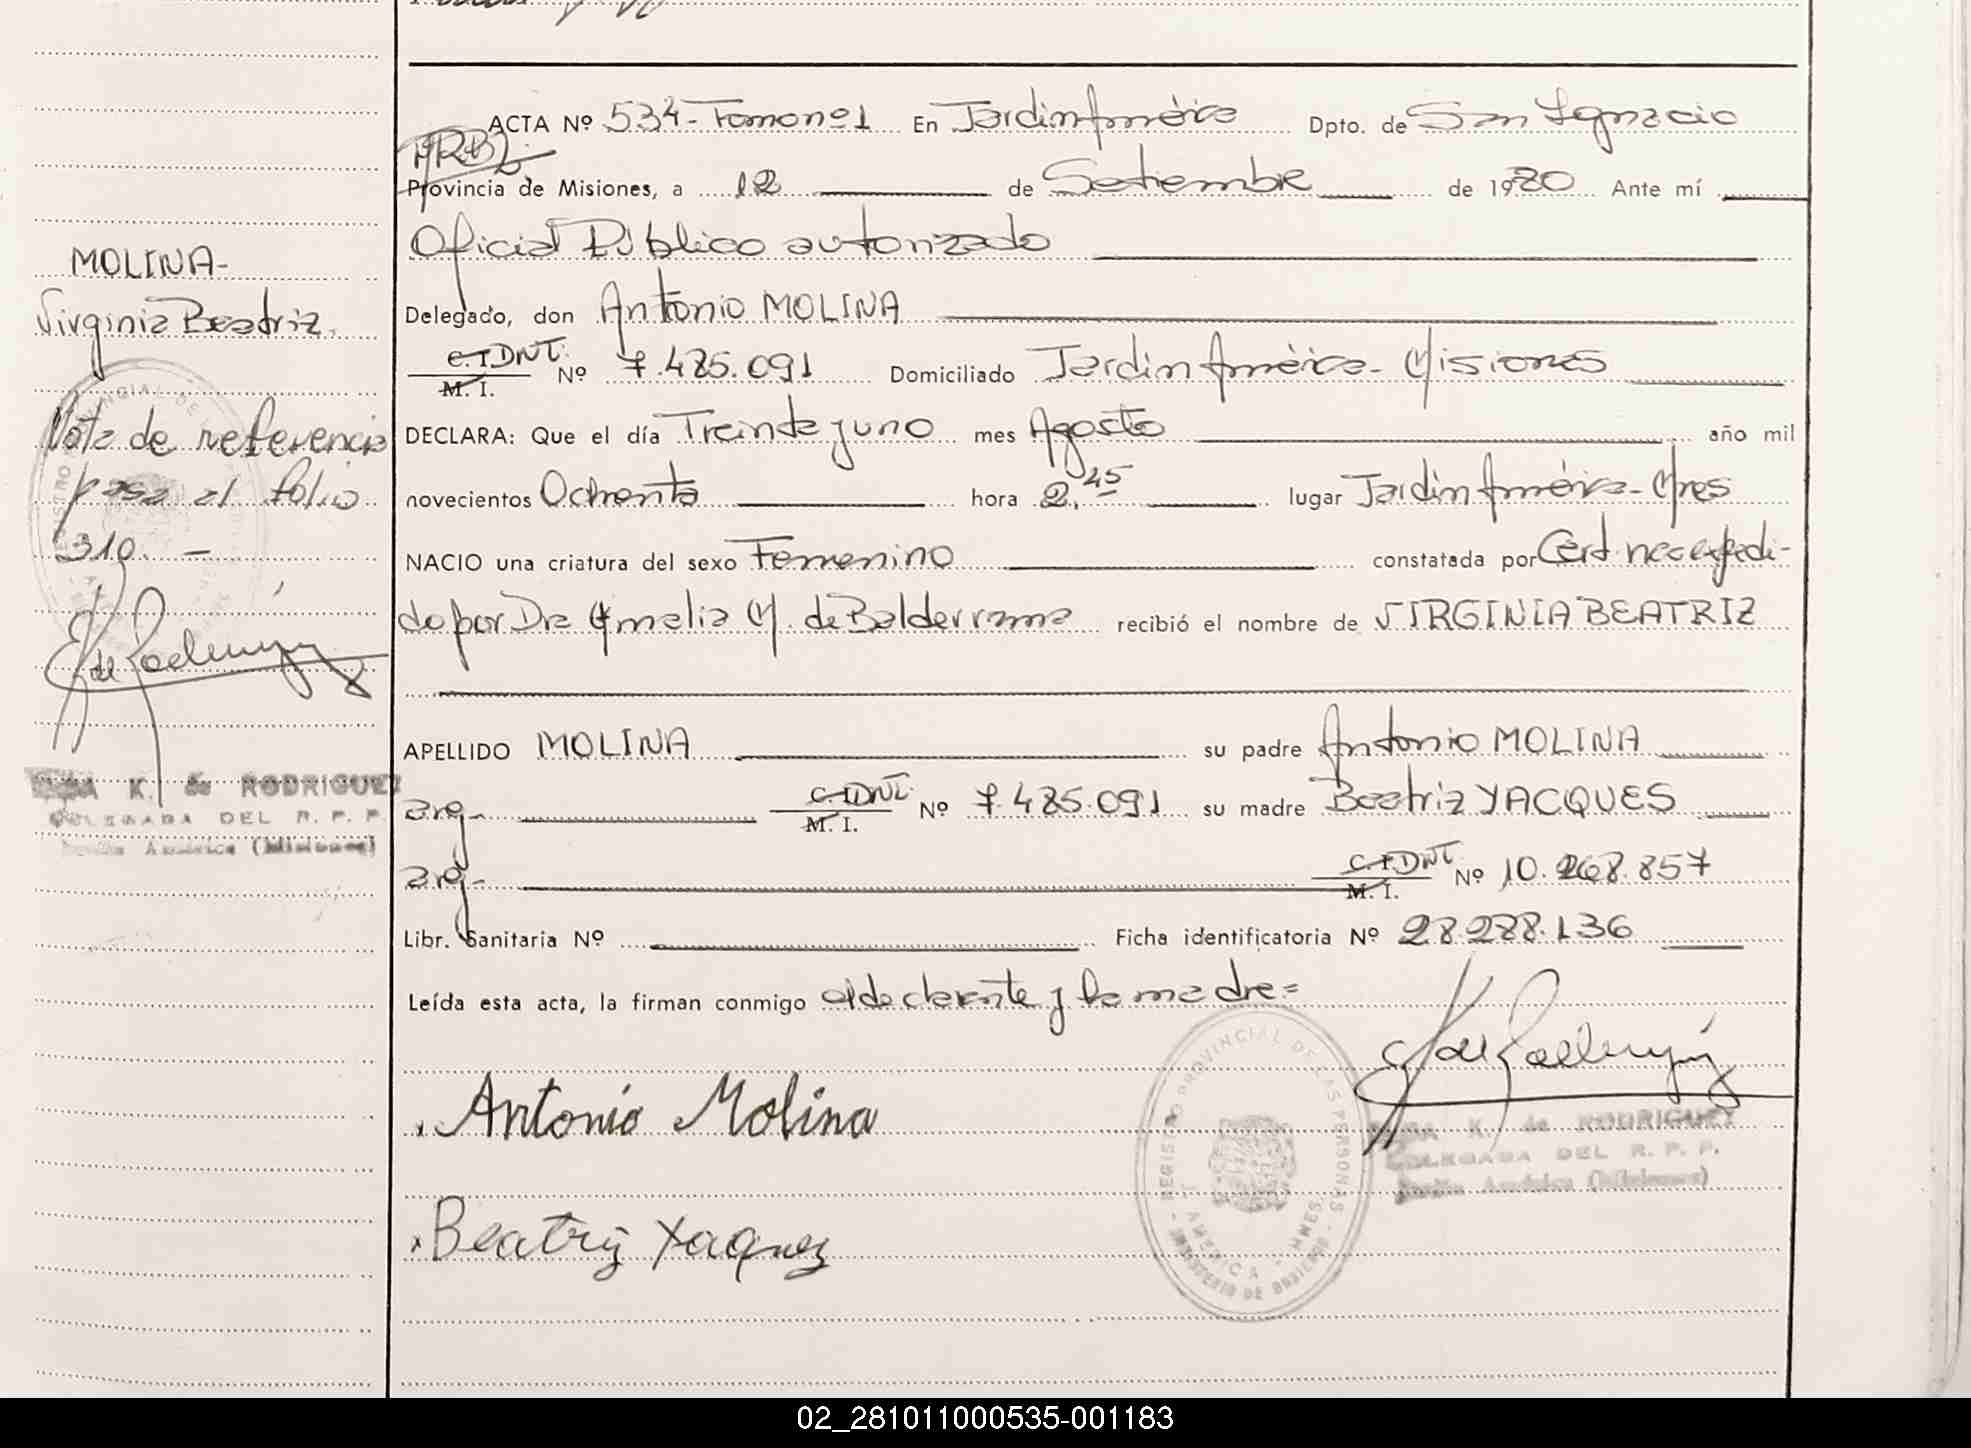 ACTA Nº 534-Tomo nº1 En Jardin América Dpto. de San Ignacio
Provincia de Misiones, a 12 de Setiembre de 1980 Ante mí
Oficial Público autorizado
Delegado, don Antonio MOLINA
C.I.DNI. M. I. Nº 7.485.091 Domiciliado Jardin América - Misiones
DECLARA: Que el día Treinta y uno mes Agosto año mil
novecientos Ochenta hora 2,45 lugar Jardin América - Mnes
NACIO una criatura del sexo Femenino constatada por Cert nac expedi-
do por Dra Amalia M. de Balderrama recibió el nombre de VIRGINIA BEATRIZ
APELLIDO MOLINA su padre Antonio MOLINA
arg- C.I.DNI. M. I. Nº 7.485.091 su madre Beatriz YACQUES
arg- C.I.DNI M. I. Nº 10.268.857
Libr. Sanitaria Nº Ficha identificatoria Nº 28.288.136
Leída esta acta, la firman conmigo el declarante y la madre=
Antonio Molina
Beatriz Yaquez
REGISTRO PROVINCIAL DE LAS PERSONAS
J. AMERICA - MNES.
MINISTERIO DE GOBIERNO
K. de RODRIGUEZ
DELEGADA DEL R. P. P.
Jardín América (Misiones)
MOLINA-
Virginia Beatriz.
Nota de referencia
pasa al folio
310. -
K. de RODRIGUEZ
DELEGADA DEL R. P. P.
Jardín América (Misiones)
02_281011000535-001183